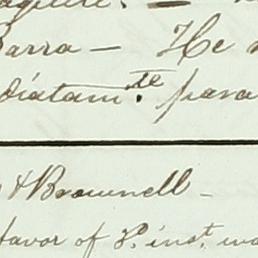 Barra — He
diatam.te para
& Brownell —
favor of 8. inst.